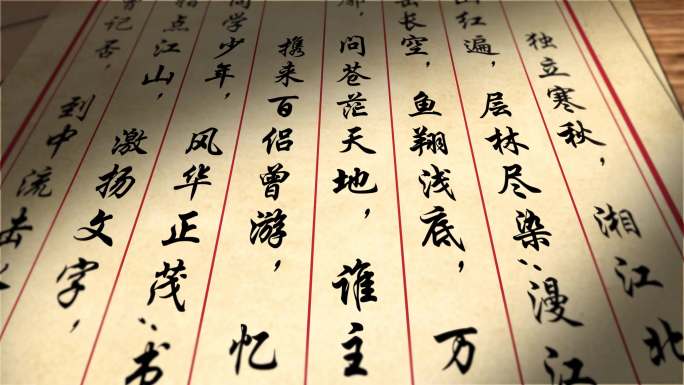 独立寒秋，湘江北
山红遍，层林尽染；漫江
长空，鱼翔浅底，万
廓，问苍茫天地，谁主
携来百侣曾游，忆
同学少年，风华正茂；书
指点江山，激扬文字，
记否，到中流击